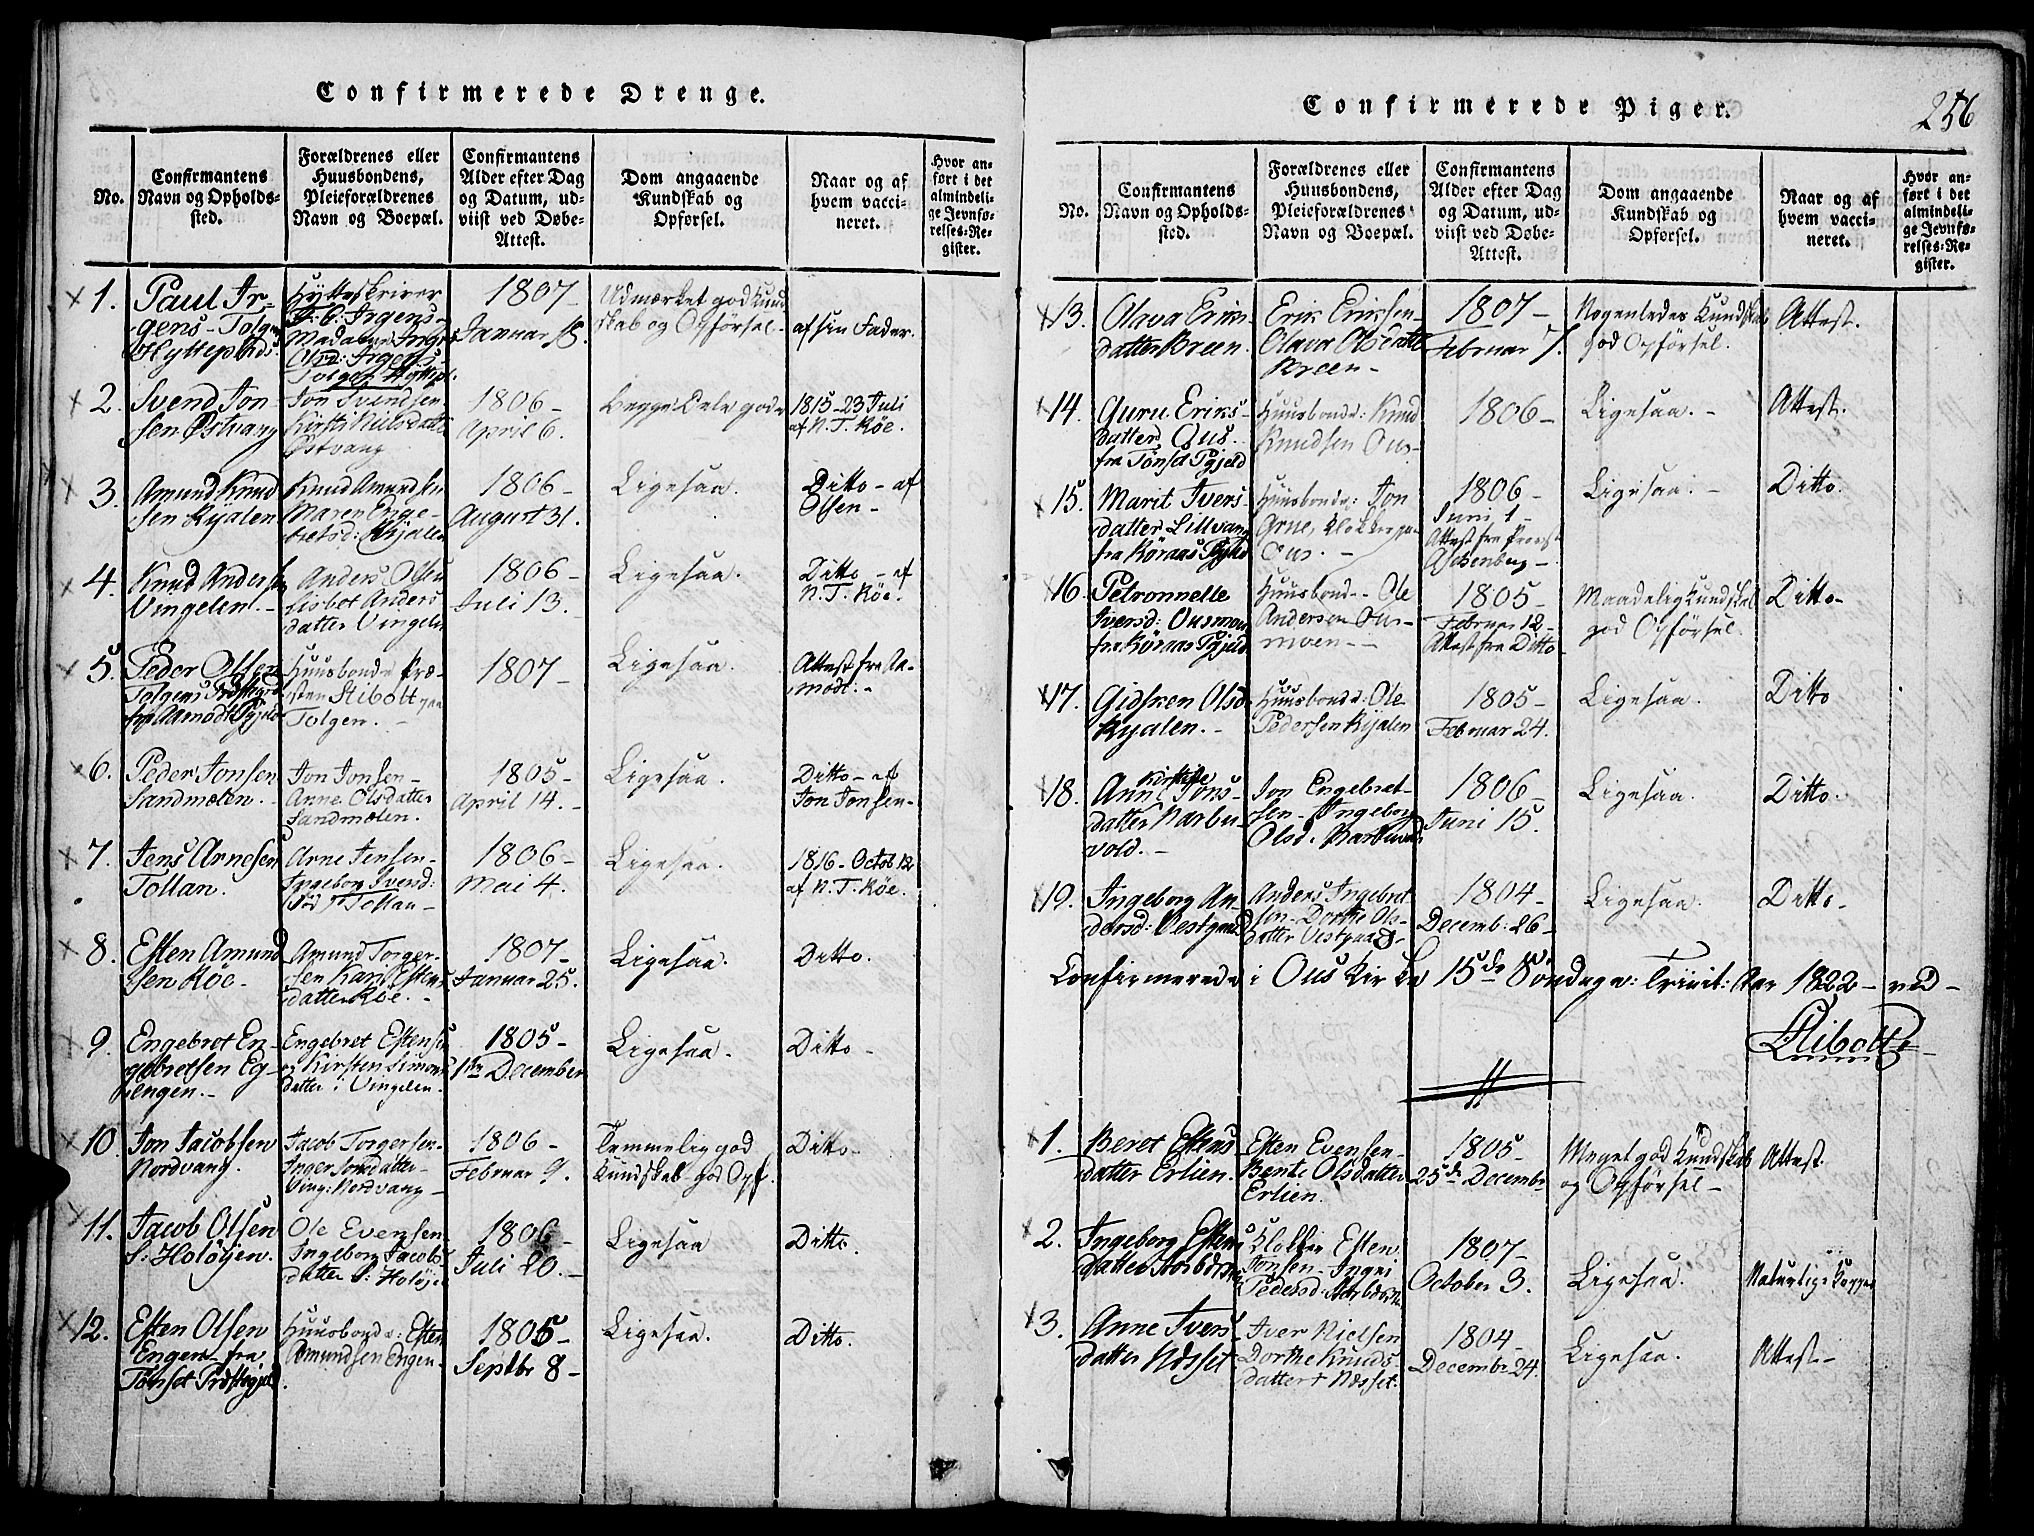 Confirmerede Drenge.
No.
Confirmantens
Navn og Opholds-
sted.
Forældrenes eller
Huusbondens,
Pleieforældrenes
Navn og Boepæl.
Confirmantens
Alder efter Dag
og Datum, ud-
viist ved Døbe-
Attest.
Dom angaaende
Kundskab og
Opførsel.
Naar og af
hvem vacci-
neret.
Hvor an-
ført i det
almindeli-
ge Jevnfø-
relses-Re-
gister.
1.
Paul Ir-
gens - Tolgens
Hytteplads
Hytteskriver
Irgens -
Madame Inger
Olsd: Irgens -
Tolgens Hyttepl.
1807 -
Januar 18.
Udmærket god Kund-
skab og Opførsel -
af sin Fader.
2.
Svend Jon-
sen Østvang
Jon Svendsen
Kirsti Nilsdatter
Østvang
1806 -
April 6.
Begge Dele gode
1815 - 23 Juli
af N. T. Röe.
3.
Amund Knud
sen Kjalen
Knud Amundsen
Maren Enge-
bretsd: Kjalen
1806 -
August 31.
Ligesaa.
Ditto - af
Olsen -
4.
Knud Andersen
Vingelen. -
Anders Olsen
Lisbet Anders
datter Vingelen
1806 -
Juli 13.
Ligesaa.
Ditto - af
N. T. Röe.
5.
Peder Olsen
Tolgens Præstegd
fra Aamodt Pgjeld
Huusbonde Præ-
sten Stibolt paa
Tolgen. -
1807 -
Ligesaa.
Attest fra Aa-
modt. -
6.
Peder Jonsen
Sandmælen. -
Jon Jonsen -
Anne Olsdatter
Sandmælen.
1805 -
April 14. -
Ligesaa.
Ditto - af
Jon Jonsen -
7.
Jens Arnesen
Tollan.
Arne Jensen -
Ingeborg Svend:
Tollan -
1806 -
Mai 4.
Ligesaa.
1816 - Octob 12
af N. T. Röe.
8.
Esten Amund
sen Röe -
Amund Torger-
sen Kari Estens
datter Röe. -
1807 -
Januar 25.
Ligesaa.
Ditto.
9.
Engebret En-
gebretsen Eg-
gengen. -
Engebret Estensen
og Kirsten Simons
datter i Vingelen -
1805 -
1ste December
Ligesaa.
Ditto -
10.
Jon Jacobsen
Nordvang.
Jacob Torgersen -
Inger Jonsdatter -
Ving: Nordvang -
1806 -
Februar 9.
Temmelig god
Kundskab god Opf.
Ditto -
11.
Jacob Olsen
S: Holöyen.
Ole Evensen
Ingeborg Jacobs-
datter S: Holöye
1806 -
Juli 20. -
Ligesaa
Ditto.
12.
Esten Olsen
Engen - fra
Tönset Præstegjeld
Huusbonde: Esten
Amundsen Engen -
1805 -
Septbr 8 -
Ligesaa.
Ditto.
Confirmerede Piger.
256
No.
Confirmantens
Navn og Opholds-
sted.
Forældrenes eller
Huusbondens,
Pleieforældrenes
Navn og Boepæl.
Confirmantens
Alder efter Dag
og Datum, ud-
viist ved Døbe-
Attest.
Dom angaaende
Kundskab og
Opførsel.
Naar og af
hvem vacci-
neret.
Hvor an-
ført i det
almindeli-
ge Jevnfø-
relses-Re-
gister.
13.
Olava Eriks-
datter Breen.
Erik Eriksen -
Olava Olsdatter
Breen -
1807 -
Februar 7.
Nogenledes Kundskab
god Opförsel.
Attest.
14.
Guru Eriks-
datter Ous.
fra Tönset Pgjeld
Huusbonde: Knud
Knudsen Ous -
1806 -
Ligesaa. -
Attest.
15.
Marit Ivers-
datter Lillvang
fra Röraas Pgjeld
Huusbonde: Jon
Arne, Klokker paa
Ous. -
1806 -
Juni 1 -
Attest fra Provst
Aschenberg -
Ligesaa. -
Ditto.
16.
Petronnelle
Iversd: Ousmoen
fra Röraas Pgjeld
Huusbond - Ole
Andersen Ous-
moen -
1805 -
Februar 12 -
Attest fra Ditto
Maadelig Kundskab
god Opförsel.
Ditto -
17.
Gidsken Olsd
Kjalen. -
Huusbonde: Ole
Pedersen Kjalen
1805 -
Februar 24.
Ligesaa.
Ditto
18.
Kirstine
Anne Jons-
datter Narbu-
vold. -
Jon Engebret-
sen - Ingeborg
Olsd: Narbuvold
1806 -
Juni 15.
Ligesaa.
Ditto.
19.
Ingeborg An-
dersd: Vestgaard
Anders Ingebret-
sen - Dorthe Ols-
datter Vestgaard -
1804 -
Decemb: 26 -
Ligesaa.
Ditto.
Confirmerede i Ous Kirke 15de Söndag e: Trinit: Aar 1822 - ved -
Stibolt
1.
Beret Estens
datter Erlien.
Esten Evensen -
Bente Olsdatter
Erlien.
1805 -
25de Decembr
Meget god Kundskab
og Opförsel -
Attest.
2.
Ingeborg Estens
datter
Klokker Esten
Jonsen - Ingri
Pedersd:
1807 -
October 3.
Ligesaa.
Naturlige Kopper
3.
Anne Ivers
datter Næsset
Iver Nielsen
Dorthe Knuds
datter Næsset.
1804 -
December 24.
Ligesaa.
Attest -